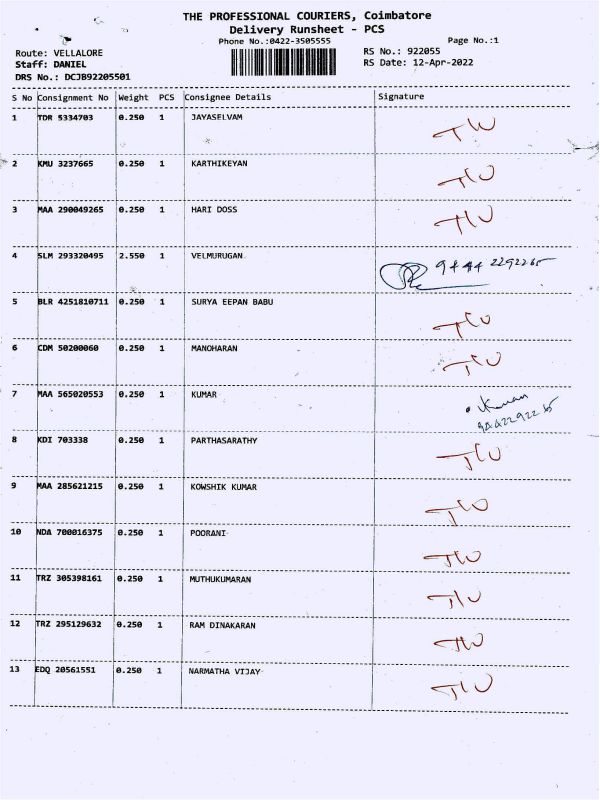 THE PROFESSIONAL COURIERS, Coimbatore
Delivery Runsheet - PCS
Phone No.:0422-3505555
Page No.:1
Route: VELLALORE
RS No.: 922055
Staff: DANIEL
RS Date: 12-Apr-2022
DRS No.: DCJB92205501
S No Consignment No Weight PCS Consignee Details Signature
1 TDR 5334703 0.250 1 JAYASELVAM
2 KMU 3237665 0.250 1 KARTHIKEYAN
3 MAA 290049265 0.250 1 HARI DOSS
4 SLM 293320495 2.550 1 VELMURUGAN
5 BLR 4251810711 0.250 1 SURYA EEPAN BABU
6 CDM 50200060 0.250 1 MANOHARAN
7 MAA 565020553 0.250 1 KUMAR
8 KDI 703338 0.250 1 PARTHASARATHY
9 MAA 285621215 0.250 1 KOWSHIK KUMAR
10 NDA 700016375 0.250 1 POORANI
11 TRZ 305398161 0.250 1 MUTHUKUMARAN
12 TRZ 295129632 0.250 1 RAM DINAKARAN
13 EDQ 20561551 0.250 1 NARMATHA VIJAY